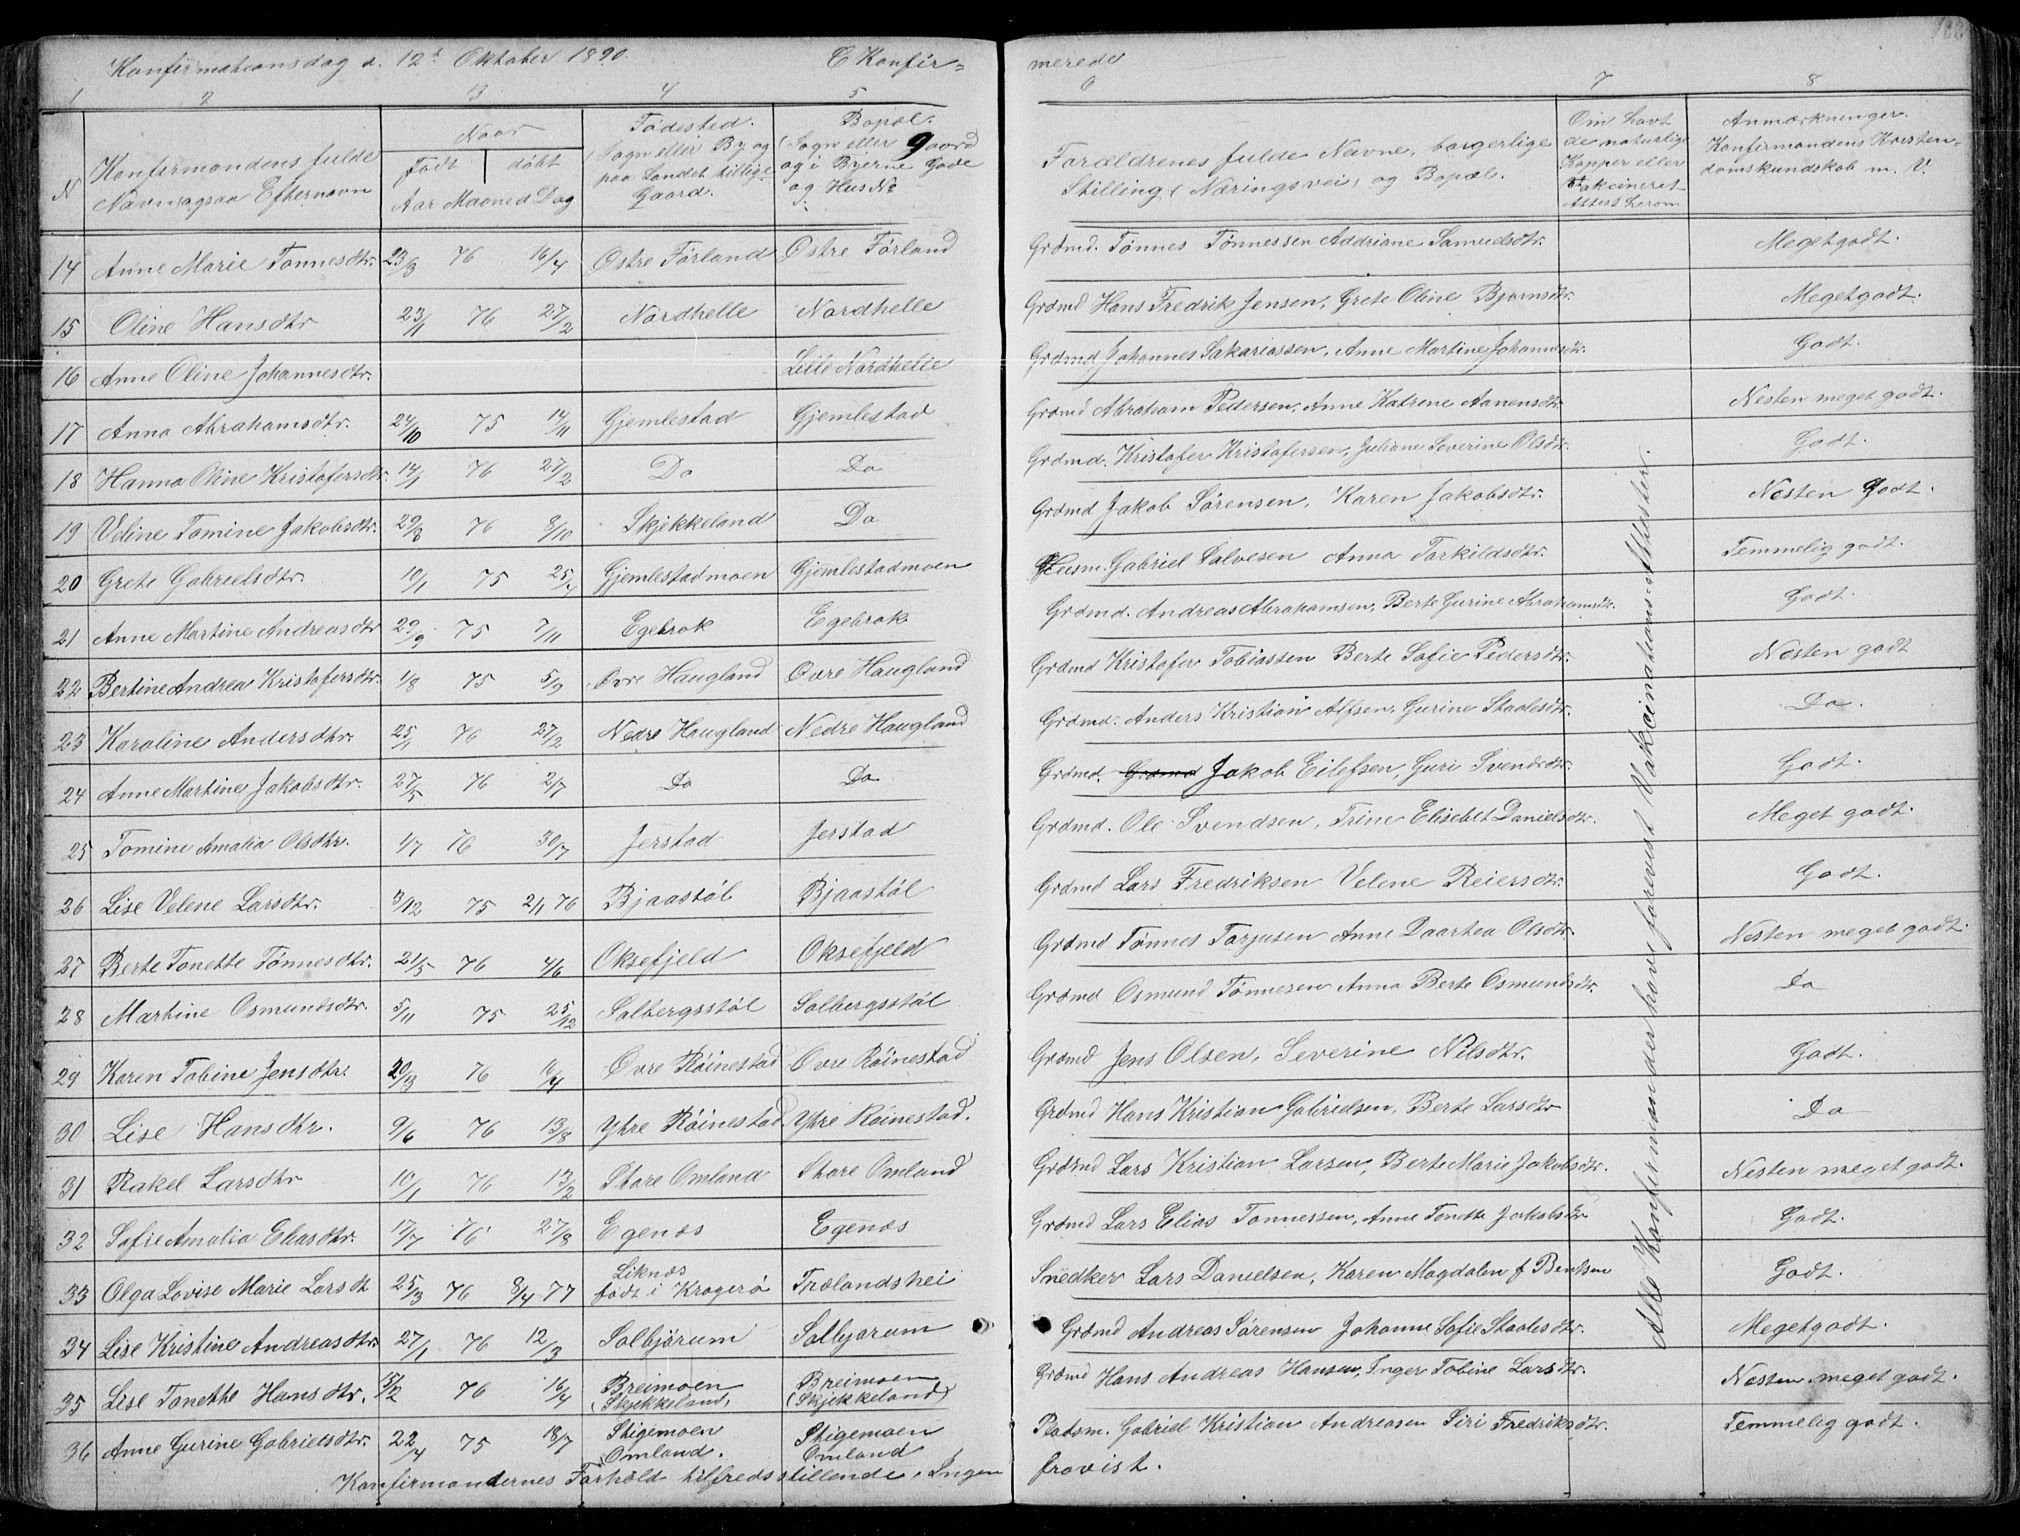 Konfirmationsdag d. 12te Oktober 1890. C Konfirmerede
1 2 3 4 5 6 7 8
N
Konfirmandens fulde Navn ogsaa Efternavn
Naar
født døbt
Aar Maaned Dag
Fødested.
(Sogn eller By, og paa Landet tillige Gaard.
Bopæl.
(Sogn eller Gaard og i Byerne Gade og Hus No
Forældrenes fulde Navne, borgerlige Stilling (Næringsvei) og Bopæl.
Om havt de naturlige Kopper eller Vakcineret Attest herom
Anmærkninger. Konfirmandens Kristendomskundskab m. V.
14 Anne Marie Tønnesdtr. 23/3 76 16/4 Østre Førland Østre Førland Grdmd. Tønnes Tønnessen Addriane Samuelsdtr. Meget godt.
15 Oline Hansdtr 23/1 76 27/2 Nordhelle Nordhelle Grdmd Hans Fredrik Jensen, Grete Oline Bjørnsdtr. Meget godt.
16 Anne Oline Johannesdtr. Lille Nordhelle Grdmd Johannes Sakariassen, Anne Martine Johannesdtr. Godt.
17 Anna Abrahamsdtr. 24/10 75 14/11 Gjemlestad Gjemlestad Grdmd Abraham Pedersen, Anne Katrine Aanensdtr. Nesten meget godt.
18 Hanna Oline Kristofersdtr. 14/1 76 27/2 Do Do Grdmd. Kristofer Kristofersen, Juliane Severine Olsdtr. Godt.
19 Veline Tomine Jakobsdtr. 29/8 76 8/10 Skjekkeland Do Grdmd Jakob Sørensen, Karen Jakobsdtr. Nesten Godt.
20 Grete Gabrielsdtr. 10/1 75 25/4 Gjemlestadmoen Gjemlestadmoen Husm. Gabriel Salvesen Anna Torkildsdtr. Temmelig godt.
21 Anne Martine Andreasdtr 29/9 75 7/11 Egebrok Egebrok Grdmd. Andreas Abrahamsen, Berte Gurine Abrahamsdtr. Godt.
22 Bertine Andrea Kristofersdtr. 1/8 75 5/9 Øvre Haugland Øvre Haugland Grdmd Kristofer Tobiassen Berte Sofie Pedersdtr. Nesten godt
23 Karoline Andersdtr. 25/1 76 27/2 Nedre Haugland Nedre Haugland Grdmd. Anders Kristian Alfsen, Gurine Staalesdtr. Do.
24 Anne Martine Jakobsdtr. 27/5 76 2/7 Do Do Grdmd. Grdmd Jakob Eilefsen, Guri Svendsdtr. Godt.
25 Tomine Amalia Olsdtr. 1/7 76 30/7 Jerstad Jerstad Grdmd. Ole Svendsen, Trine Elisebet Danielsdtr. Meget godt.
26 Lise Velene Larsdtr. 3/12 75 2/1 76 Bjaastøl Bjaastøl Grdmd Lars Fredriksen Velene Reiersdtr. Godt.
27 Berte Tonette Tønnesdtr. 21/5 76 4/6 Oksefjeld Oksefjeld Grdmd Tønnes Torjusen Anne Daartea Olsdtr. Nesten meget godt.
28 Martine Osmundsdtr. 5/11 75 25/12 Solbergsstøl Solbergsstøl Grdmd Osmund Tønnesen Anna Berte Osmundsdtr. Do
29 Karen Tobine Jensdtr. 20/3 76 16/4 Øvre Røinestad Øvre Røinestad Grdmd Jens Olsen, Severine Nilsdtr. Godt.
30 Lise Hansdtr. 9/6 76 13/8 Ytre Røinestad Ytre Røinestad. Grdmd Hans Kristian Gabrielsen, Berte Larsdtr Do
31 Rakel Larsdtr 10/1 76 13/2 Store Omland Store Omland Grdmd Lars Kristian Larsen, Berte Marie Jakobsdtr. Nesten meget godt.
32 Sofie Amalia Eliasdtr. 17/7 76 27/8 Egenæs Egenæs Grdmd Lars Elias Tønnessen, Anne Tonette Jakobsdtr Godt.
33 Olga Lovise Marie Larsdt 25/3 76 8/4 77 Liknæs født i Kragerø Trælandshei Snedker Lars Danielsen, Karen Magdalen f Bentsen Godt.
34 Lise Kristine Andreasdtr. 27/1 76 12/3 Solbjørum Solbjørum Grdmd Andreas Sørensen Johanne Sofie Staalesdtr. Meget godt.
35 Lise Tonette Hansdtr. 15/2 76 16/4 Breimoen (Skjekkeland) Breimoen (Skjekkeland) Grdmd Hans Andreas Hansen, Inger Tobine Larsdtr. Nesten meget godt.
36 Anne Gurine Gabrielsdtr. 22/4 75 18/7 Stigemoen Omland. Stigemoen Omland Pladsm. Gabriel Kristian Andreasen Siri Fredriksdtr. Temmelig godt.
Alle Konfirmander have forevist Vakcinations-Attester.
Konfirmandernes Forhold tilfredsstillende. Ingen fravist.